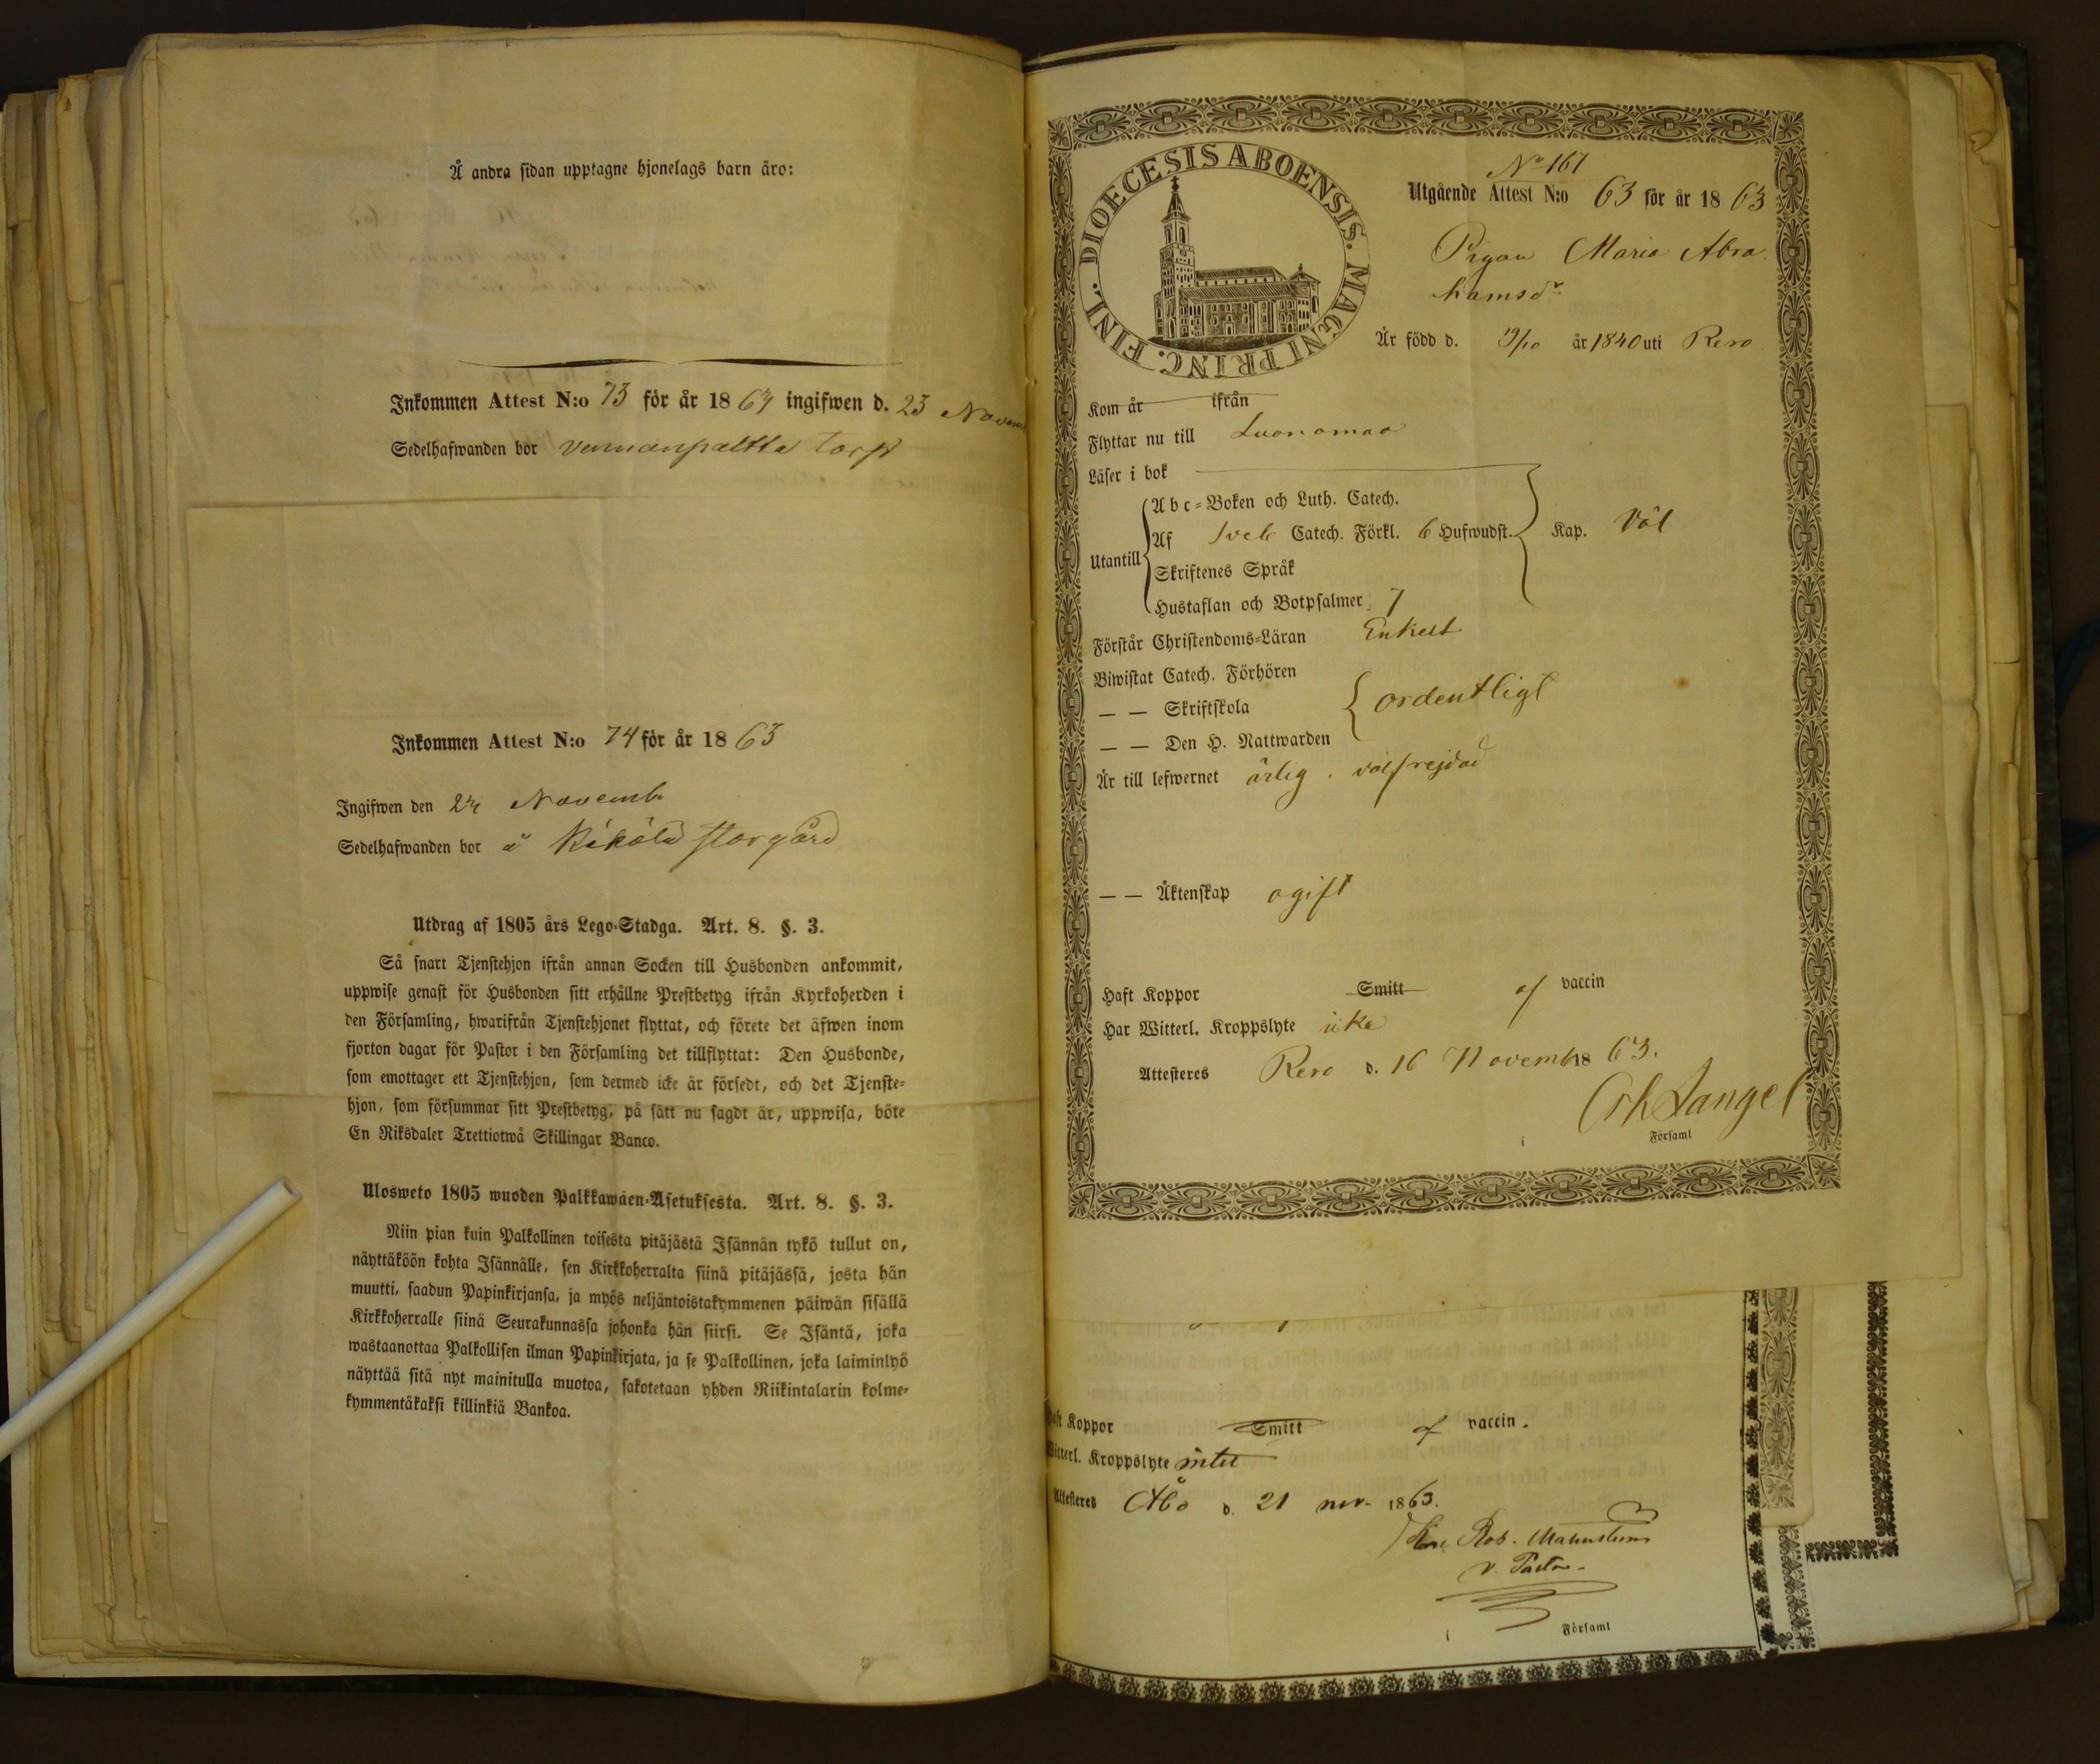 Å andra sidan upptagne hjonelags barn äro:
Inkommen Attest N:o 73 för år 1863 ingifwen d. 23 Novem
Sedelhafwanden bor torp
Inkommen Attest N:o 74 för år 1863
Ingifwen den 24 Novemb
Sedelhafwanden bor å storgård
Utdrag af 1805 års Lego-Stadga. Art. 8. §. 3.
Så snart Tjenstehjon ifrån annan Socken till Husbonden ankommit,
uppwise genast för Husbonden sitt erhållne Prestbetyg ifrån Kyrkoherden i
den Församling, hwarifrån Tjenstehjonet flyttat, och förete det äfwen inom
fjorton dagar för Pastor i den Församling det tillflyttat: Den Husbonde,
som emottager ett Tjenstehjon, som dermed icke är försedt, och det Tjenste-
hjon, som försummar sitt Prestbetyg, på sätt nu sagdt är, uppwisa, böte
En Riksdaler Trettiotwå Skillingar Banco.
Ulosweto 1805 wuoden Palkkawäen-Asetuksesta. Art. 8. §. 3.
Niin pian kuin Palkollinen toisesta pitäjästä Isännän tykö tullut on,
näyttäköön kohta Isännälle, sen Kirkkoherralta siinä pitäjässä, josta hän
muutti, saadun Papinkirjansa, ja myös neljäntoistakymmenen päiwän sisällä
Kirkkoherralle siinä Seurakunnassa johonka hän siirsi. Se Isäntä, joka
wastaanottaa Palkollisen ilman Papinkirjata, ja se Palkollinen, joka laiminlyö
näyttää sitä nyt mainitulla muotoa, sakotetaan yhden Riikintalarin kolme-
kymmentäkaksi killinkiä Bankoa.
DIOECESIS ABOENSIS. MAGNI PRINC. FINL.
No 161
Utgående Attest N:o 63 för år 1863
Pigan Maria Abra
hamsdr
Är född d. 19/10 år 1840 uti Reso
Kom år ifrån
Flyttar nu till Luonomaa
Läser i bok
Utantill
Abc-Boken och Luth. Catech.
Af Sveb Catech. Förkl. 6 Hufwudst. Kap. Väl
Skriftenes Språk
Hustaflan och Botpsalmer 7
Förstår Christendoms-Läran Enkelt
Biwistat Catech. Förhören
— — Skriftskola ordentligt
— — Den H. Nattwarden
Är till lefwernet ärlig, välfrejdad
— — Äktenskap ogift
Haft Koppor Smitt af vaccin
Har Witterl. Kroppslyte icke
Attesteres Reso d. 16 Novemb 1863.
Langel
i Församl
Haft Koppor Smitt af vaccin.
Witterl. Kroppslyte intet
Attesteres Åbo d. 21 nov. 1863.
Rob. Malmström
v. Pastor.
i Församl